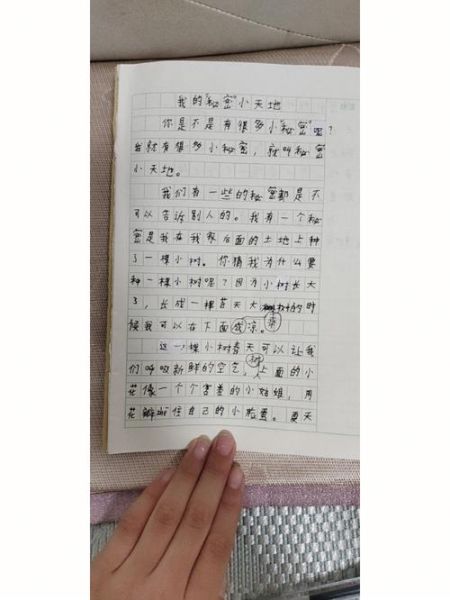 我的"秘密"小天地
你是不是有很多小"秘密"呢?
我就有很多小秘密,就叫秘密
小天地。
我们有一些的秘密都是不
可以告诉别人的。我有一个秘
密是我在我家后面的土地上种
了一棵小树。你猜我为什么要
种一棵小树呢?因为小树长大
了,长成一棵苍天大树的时
候我可以在下面成凉。乘
这一棵小树春天可以让我
们呼吸新鲜的空气,树上面的小
花像一个个害羞的小姑娘,用
花瓣遮住自己的小脸蛋。夏天